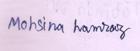 Mohsina hamraaz